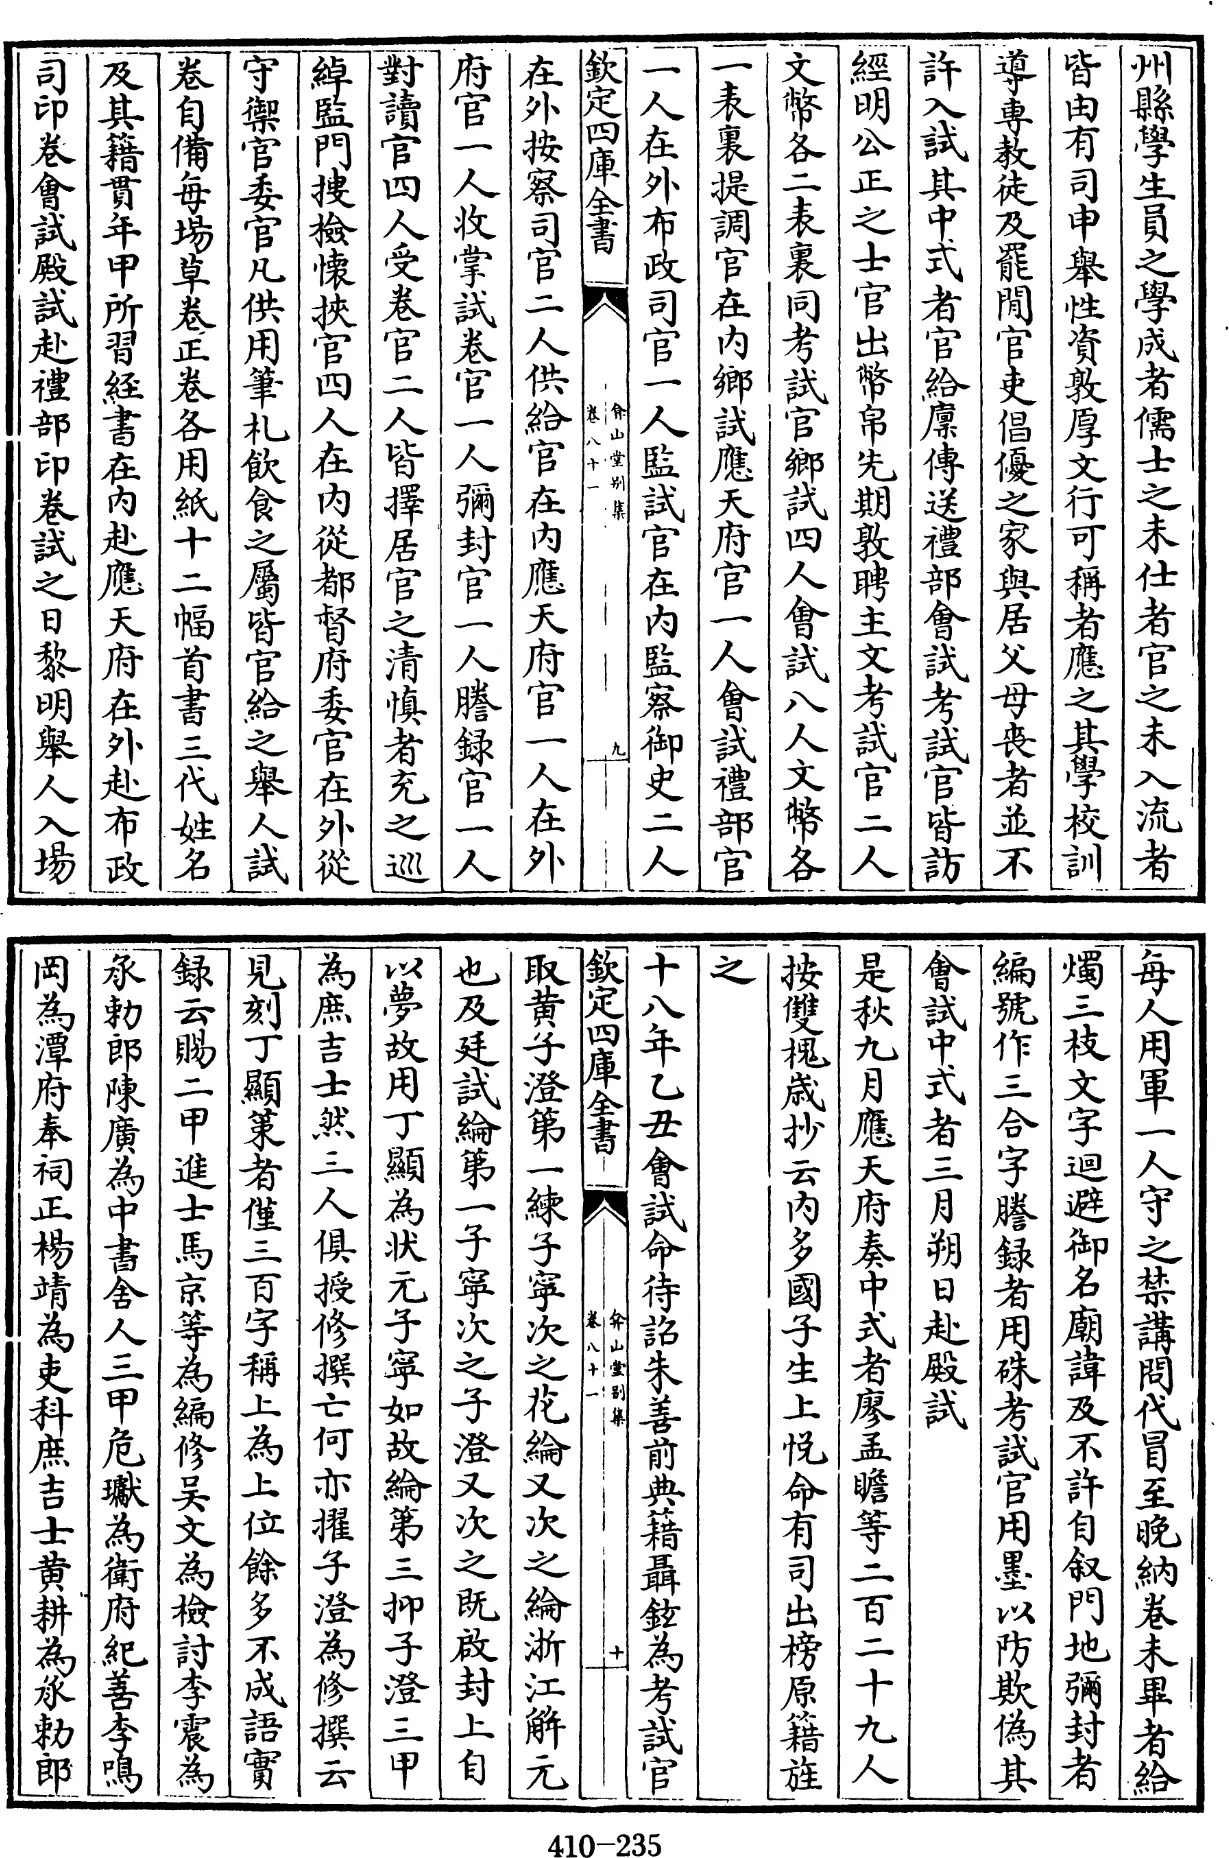 州縣學生員之學成者儒士之未仕者官之未入流者
皆由有司申舉性資敦厚文行可稱者應之其學校訓
導專教徒及罷閒官吏倡優之家與居父母喪者並不
許入試其中式者官給廪傳送禮部會試考試官皆訪
經明公正之士官出幣帛先期敦聘主文考試官二人
文幣各二表裏同考試官鄉試四人會試八人文幣各
一表裏提調官在内鄉試應天府官一人會試禮部官
一人在外布政司官一人監試官在内監察御史二人
欽定四庫全書
弇山堂别集
卷八十一
九
在外按察司官二人供給官在内應天府官一人在外
府官一人收掌試卷官一人彌封官一人謄録官一人
對讀官四人受卷官二人皆擇居官之清慎者充之巡
綽監門搜檢懐挾官四人在内從都督府委官在外從
守禦官委官凡供用筆札飲食之屬皆官給之舉人試
卷自備每場草卷正卷各用紙十二幅首書三代姓名
及其籍貫年甲所習經書在内赴應天府在外赴布政
司印卷會試殿試赴禮部印卷試之日黎明舉人入場
每人用軍一人守之禁講問代冒至晚納卷未畢者給
燭三枝文字迴避御名廟諱及不許自叙門地彌封者
編號作三合字謄録者用硃考試官用墨以防欺偽其
會試中式者三月朔日赴殿試
是秋九月應天府奏中式者廖孟瞻等二百二十九人
按雙槐歲抄云内多國子生上悅命有司出榜原籍旌
之
十八年乙丑會試命待詔朱善前典籍聶鉉為考試官
欽定四庫全書
弇山堂别集
卷八十一
十
取黄子澄第一練子寧次之花綸又次之綸浙江解元
也及廷試綸第一子寧次之子澄又次之既啟封上自
以夢故用丁顯為狀元子寧如故綸第三抑子澄三甲
為庶吉士然三人俱授修撰亡何亦擢子澄為修撰云
見刻丁顯策者僅三百字稱上為上位餘多不成語實
録云賜二甲進士馬京等為編修吴文為檢討李震為
承勅郎陳廣為中書舍人三甲危瓛為衛府紀善李鳴
岡為潭府奉祠正楊靖為吏科庶吉士黄耕為承勅郎
410-235